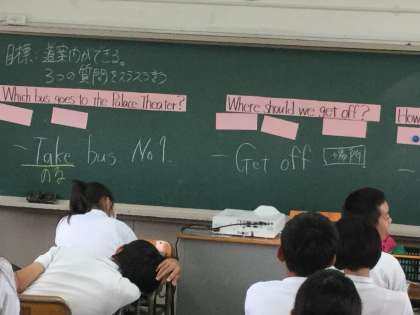 目標:道案内ができる。
3つの質問をスラスラ言う
Which bus goes to the Palace Theater?
Where should we get off?
How
- Take bus No 1.
のる
- Get off 場所